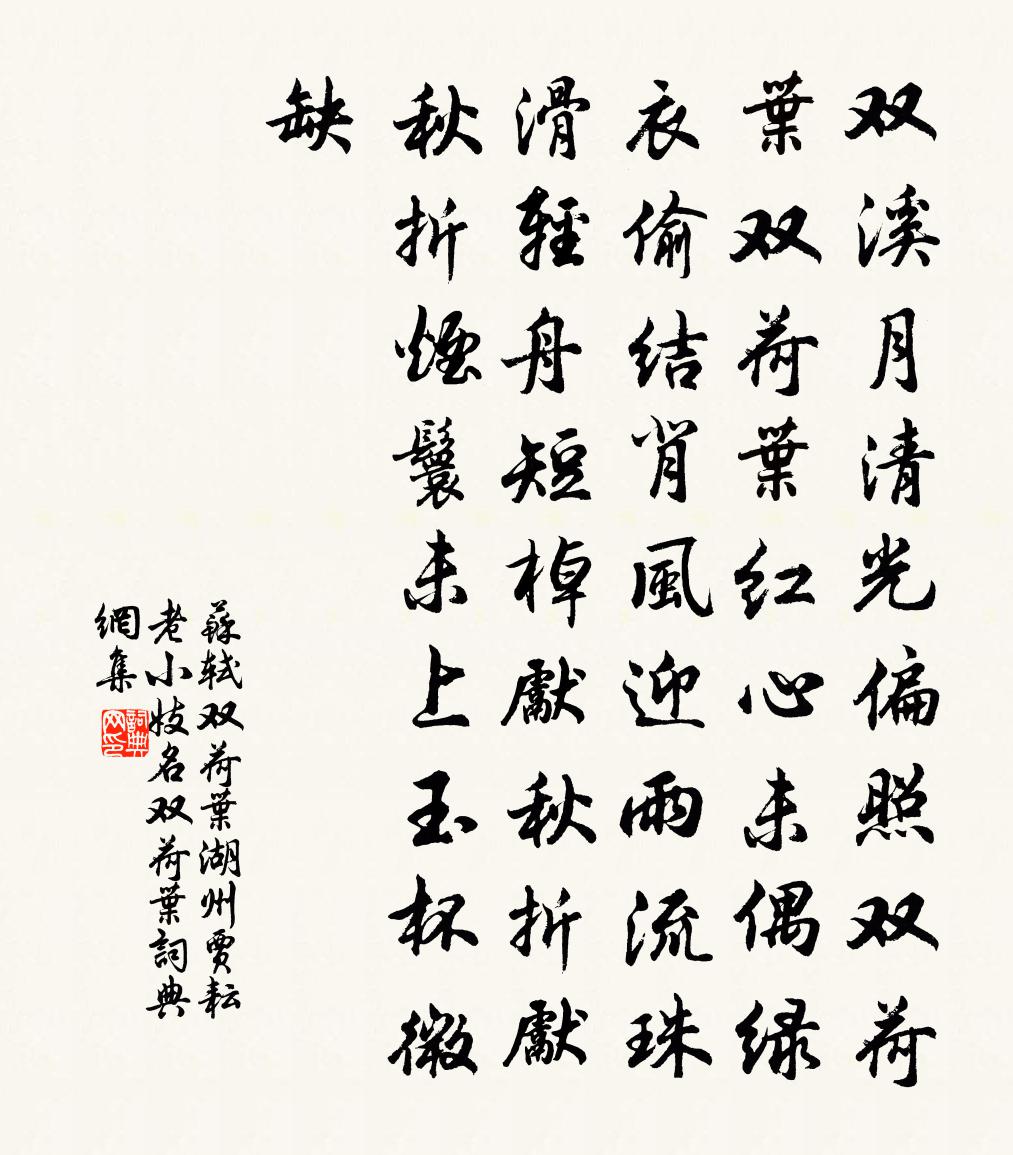 双溪月清光偏照双荷
葉双荷葉红心未偶绿
衣偷结肖風迎雨流珠
滑輕舟短棹獻秋折獻
秋折煙鬟未上玉杯微
缺
蘇轼双荷葉湖州賈耘
老小妓名双荷葉詞典
網集
詞典
网印